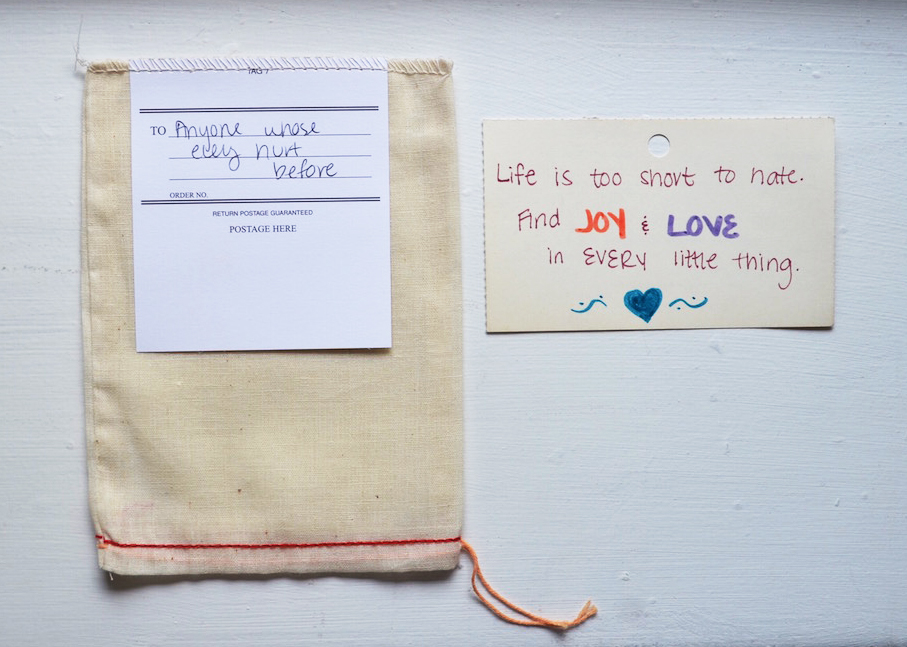 TAG 7
TO Anyone whose
every hurt
before
ORDER NO.
RETURN POSTAGE GUARANTEED
POSTAGE HERE
Life is too short to hate.
Find JOY & LOVE
in EVERY little thing.